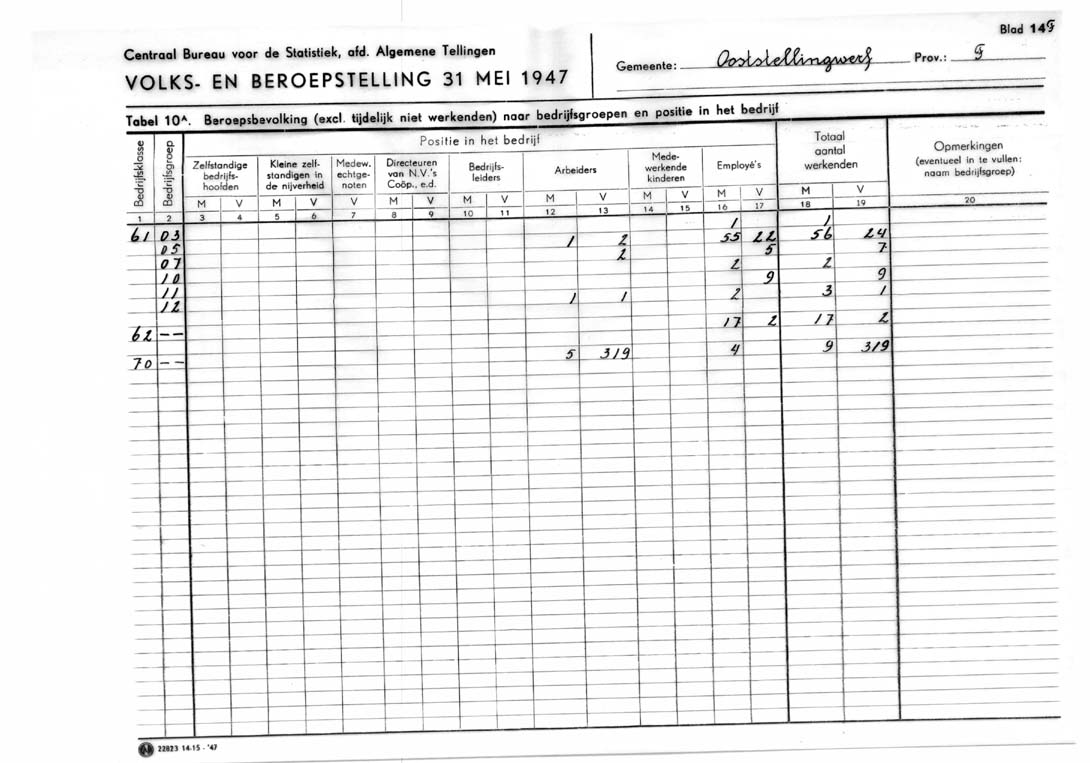 Blad 14G
Centraal Bureau voor de Statistiek, afd. Algemene Tellingen
VOLKS- EN BEROEPSTELLING 31 MEI 1947
Gemeente: Ooststellingwerf Prov.: F
Tabel 10A. Beroepsbevolking (excl. tijdelijk niet werkenden) naar bedrijfsgroepen en positie in het bedrijf
Bedrijfsklasse
Bedrijfsgroep
Positie in het bedrijf
Zelfstandige
bedrijfs-
hoofden
Kleine zelf-
standigen in
de nijverheid
Medew.
echtge-
noten
Directeuren
van N.V.'s
Coöp., e.d.
Bedrijfs-
leiders
Arbeiders
Mede-
werkende
kinderen
Employé's
Totaal
aantal
werkenden
Opmerkingen
(eventueel in te vullen:
naam bedrijfsgroep)
M V M V V M V M V M V M V M V M V
1 2 3 4 5 6 7 8 9 10 11 12 13 14 15 16 17 18 19 20
61 03 1 1
05 1 2 55 22 56 24
07 2 5 7
10 2 2
11 9 9
12 1 1 2 3 1
62 -- 17 2 17 2
70 -- 5 319 4 9 319
22823 14-15 - '47